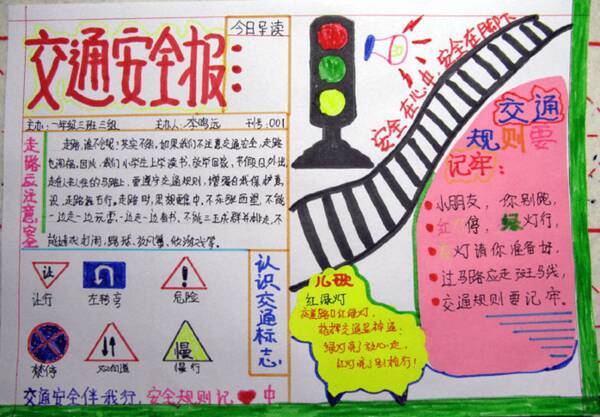 交通安全报:
今日导读
主办:一年级三班三组 主办人:李鸣远 刊号:001
走路应注意安全
走路,谁不会呢?其实不然,如果我们不注意交通安全,走路
也闯祸,因此,我们小学生上学读书,放学回家,节假日外出,
走在人来人往的马路上,要遵守交通规则,增强自我保护意
识,走路靠右行,走路时,思想集中,不东张西望,不能
一边走一边玩耍,一边走一边看书,不能三五成群并排走,不
能追戏打闹,踢球,放风筝,做游戏等。
让
让行
左转弯
危险
禁停
双向行道
慢
慢行
认识交通标志
交通安全伴我行,安全规则记 中
安全在心中,安全在脚下
儿歌
红绿灯
交通路口红绿灯,
指挥交通显神通;
绿灯亮了放心走,
红灯亮了别抢行!
交通
规则要
记牢:
小朋友,你别跑,
红灯停,绿灯行,
黄灯请你准备好,
过马路应走斑马线,
交通规则要记牢。